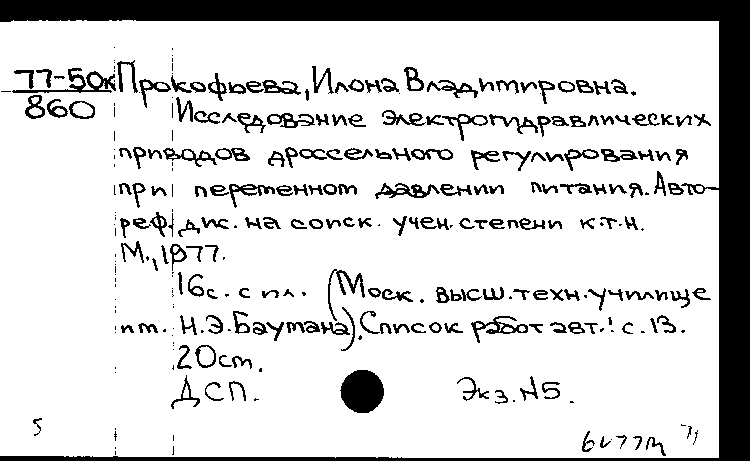 77-50к Прокофьева, Илона Владимировна.
860 Исследование электрогидравлических
приводов дроссельного регулирования
при переменном давлении питания. Авто-
реф. дис. на соиск. учен. степени к.т.н.
М., 1977.
16с. с ил. (Моск. высш. техн. училище
им. Н.Э. Баумана). Список работ авт.: с. 13.
20см.
ДСП. Экз. №5.
5